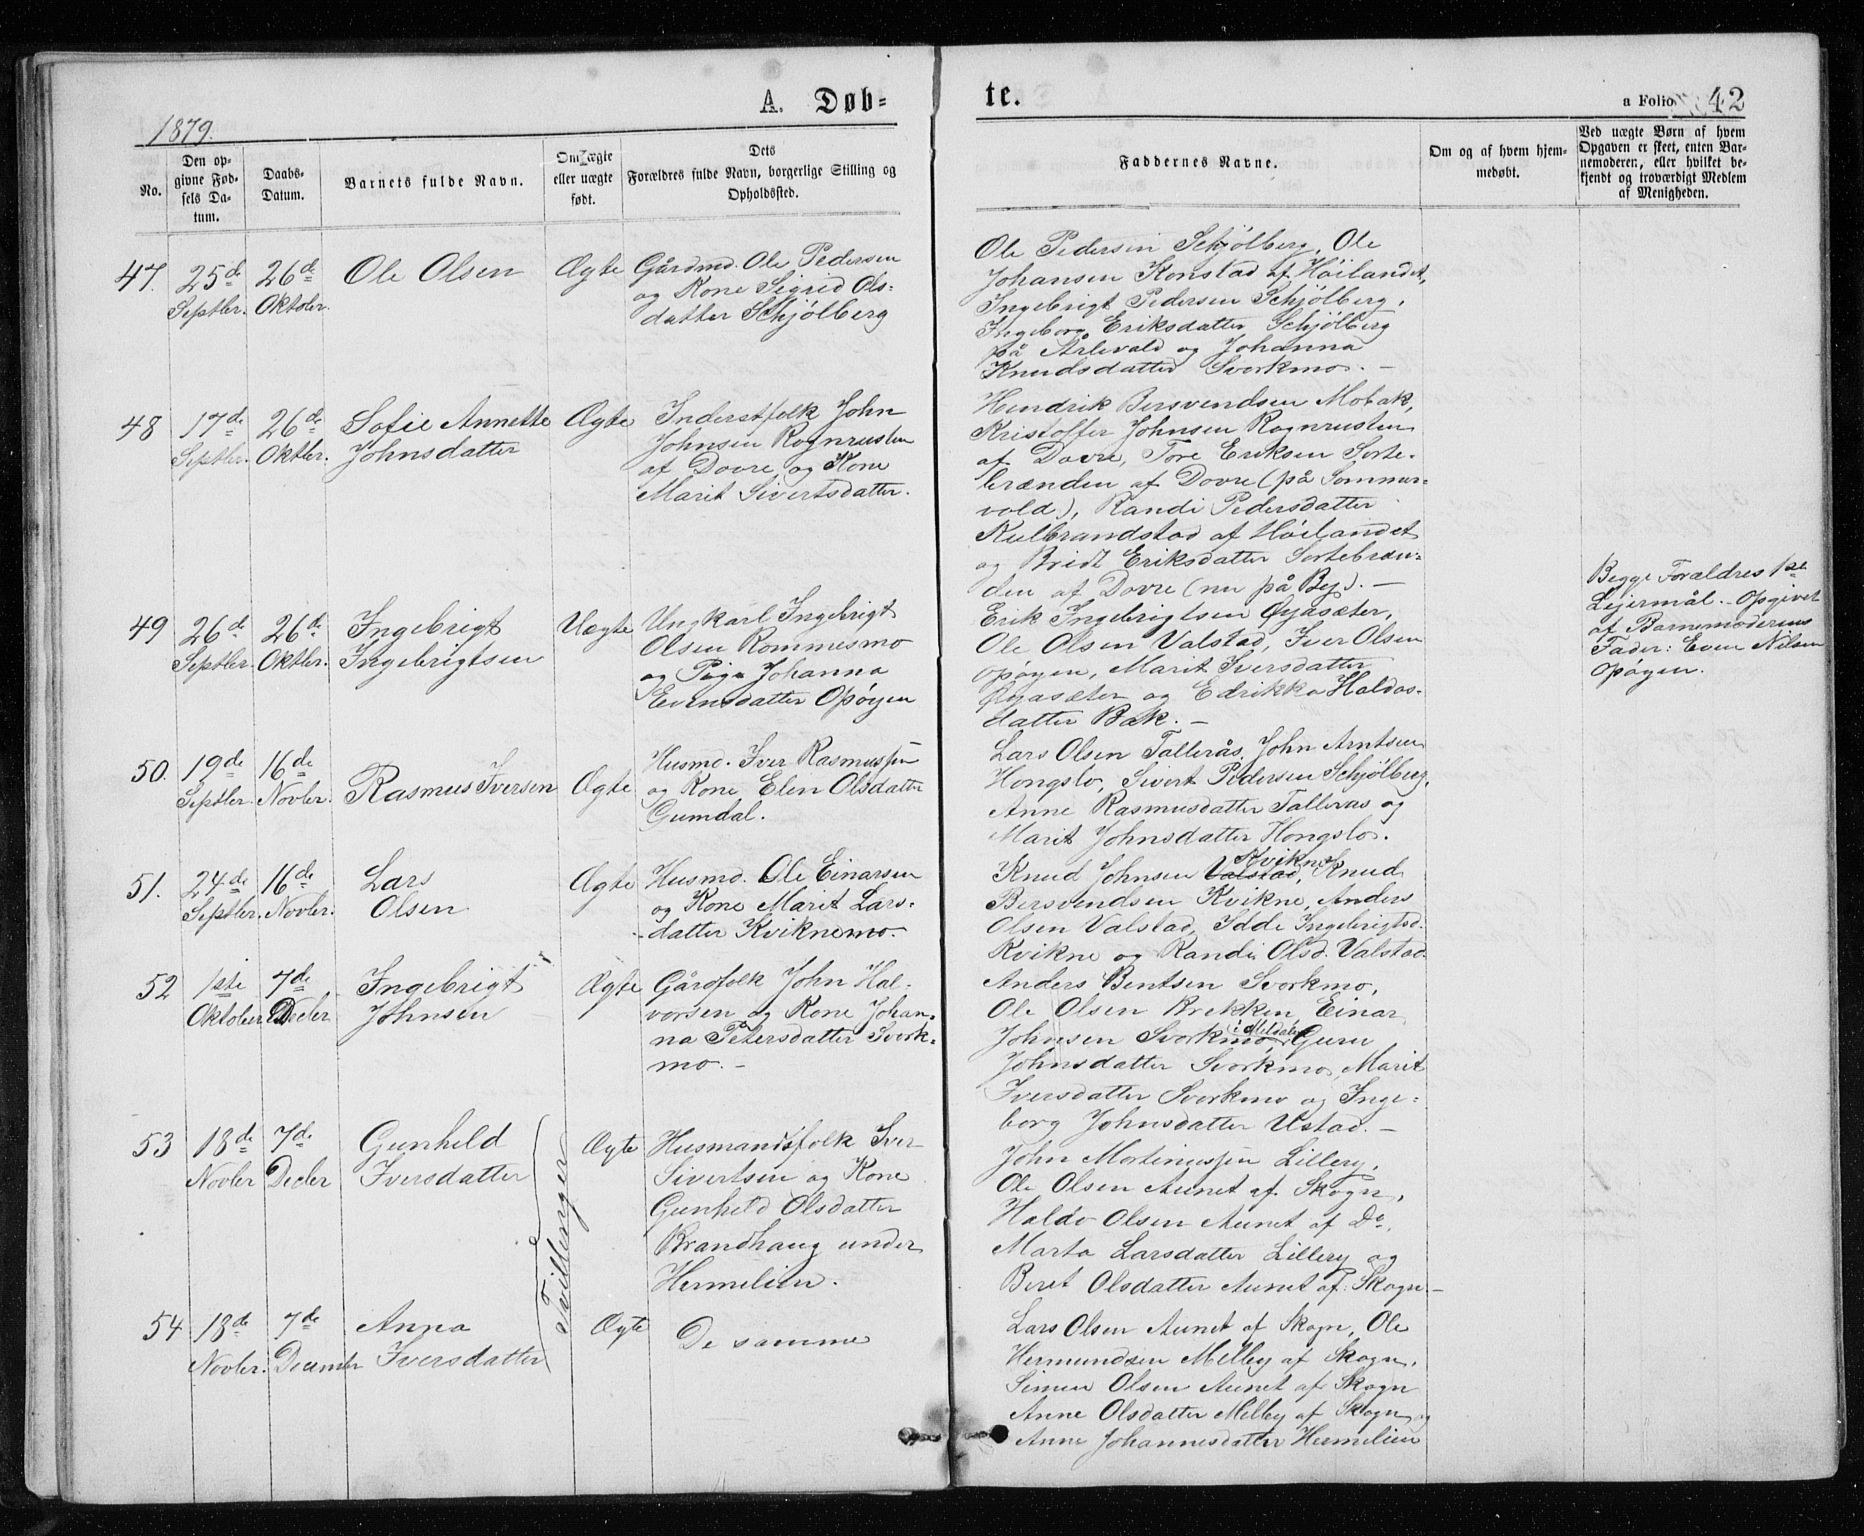 A. Døb-
te.
a Folio 42
1879.
No.
Den op-
givne Fød-
sels Da-
tum.
Daabs-
Datum.
Barnets fulde Navn.
Om ægte
eller uægte
født.
Dets
Forældres fulde Navn, borgerlige Stilling og
Opholdssted.
Faddernes Navne.
Om og af hvem hjem-
medøbt.
Ved uægte Børn af hvem
Opgaven er skeet, enten Bar-
nemoderen, eller hvilket be-
kjendt og troværdigt Medlem
af Menigheden.
47.
25de
Septbr.
26de
Oktober.
Ole Olsen
Ægte
Gårdmd. Ole Pedersen
og Kone Sigrid Ols-
datter Schjölberg
Ole Pedersen Schjölberg, Ole
Johansen Konstad af Höilandet,
Ingebrigt Pedersen Schjölberg,
Ingeborg Eriksdatter Schjölberg
på Årlivald og Johanna
Knudsdatter Svorkmo. -
48
17de
Septbr.
26de
Oktbr.
Sofie Annette
Johnsdatter
Ægte
Inderstfolk John
Johnsen Rognrusten
af Dovre, og Kone
Marit Sivertsdatter.
Hendrik Bersvendsen Mobak,
Kristoffer Johnsen Rognrusten
af Dovre, Tore Eriksen Sorte-
brænden af Dovre (på Sommer-
vold), Randi Pedersdatter
Kulbrandstad af Höilandet
og Bridt Eriksdatter Sortebræn-
den af Dovre (nu på By). -
49
26de
Septbr.
26de
Oktbr.
Ingebrigt
Ingebrigtsen
Uægte
Ungkarl Ingebrigt
Olsen Rommesmo
og Pige Johanna
Evensdatter Opöyen
Erik Ingebrigtsen Öyasæter,
Ole Olsen Valstad, Iver Olsen
Opöyen, Marit Iversdatter
Öyasæter og Edrikka Haldos-
datter Bak. -
Begge Forældres 1ste
Lejermål. Opgivet
af Barnemoderens
Fader: Even Nilsen
Opöyen.
50.
19de
Septbr.
16de
Novbr.
Rasmus Iversen
Ægte
Husmd. Iver Rasmussen
og Kone Elen Olsdatter
Gumdal.
Lars Olsen Tallerås, John Arntsen
Hongslo, Sivert Pedersen Schjölberg,
Anne Rasmusdatter Tallerås og
Marit Johnsdatter Hongslo.
51.
24de
Septbr.
16de
Novbr.
Lars
Olsen
Ægte
Husmd. Ole Einarsen
og Kone Marit Lars-
datter Kviknemo.
Kvikne
Knud Johnsen Valstad, Knud
Bersvendsen Kvikne, Anders
Olsen Valstad, Idde Ingebrigtsd.
Kvikne og Randi Olsd. Valstad.
52
1ste
Oktober
7de
Decbr
Ingebrigt
Johnsen
Ægte
Gårdfolk John Hal-
vorsen og Kone Johan-
na Petersdatter Svork-
mo. -
Anders Bentsen Svorkmo,
Ole Olsen Brekken, Einar
i Meldalen
Johnsen Svorkmo, Guru
Johnsdatter Svorkmo, Marit
Iversdatter Svorkmo og Inge-
borg Johnsdatter Ustad. -
53
18de
Novbr
7de
Decbr
Gunhild
Iversdatter
Tvillinger
Ægte
Husmandsfolk Iver
Sivertsen og Kone
Gunhild Olsdatter
Brandhaug under
Hermelien.
John Mortinussen Lillery,
Ole Olsen Aunet af Skogn,
Haldo Olsen Aunet af Do,
Marta Larsdatter Lillery og
Beret Olsdatter Aunet af Skogn. -
54
18de
Novbr.
7de
December
Anna
Iversdatter
Ægte
De samme
Lars Olsen Aunet af Skogn, Ole
Hermundsen Melby af Skogn,
Simen Olsen Aunet af Skogn
Anne Olsdatter Melby af Skogn og
Anne Johannesdatter Hermelien